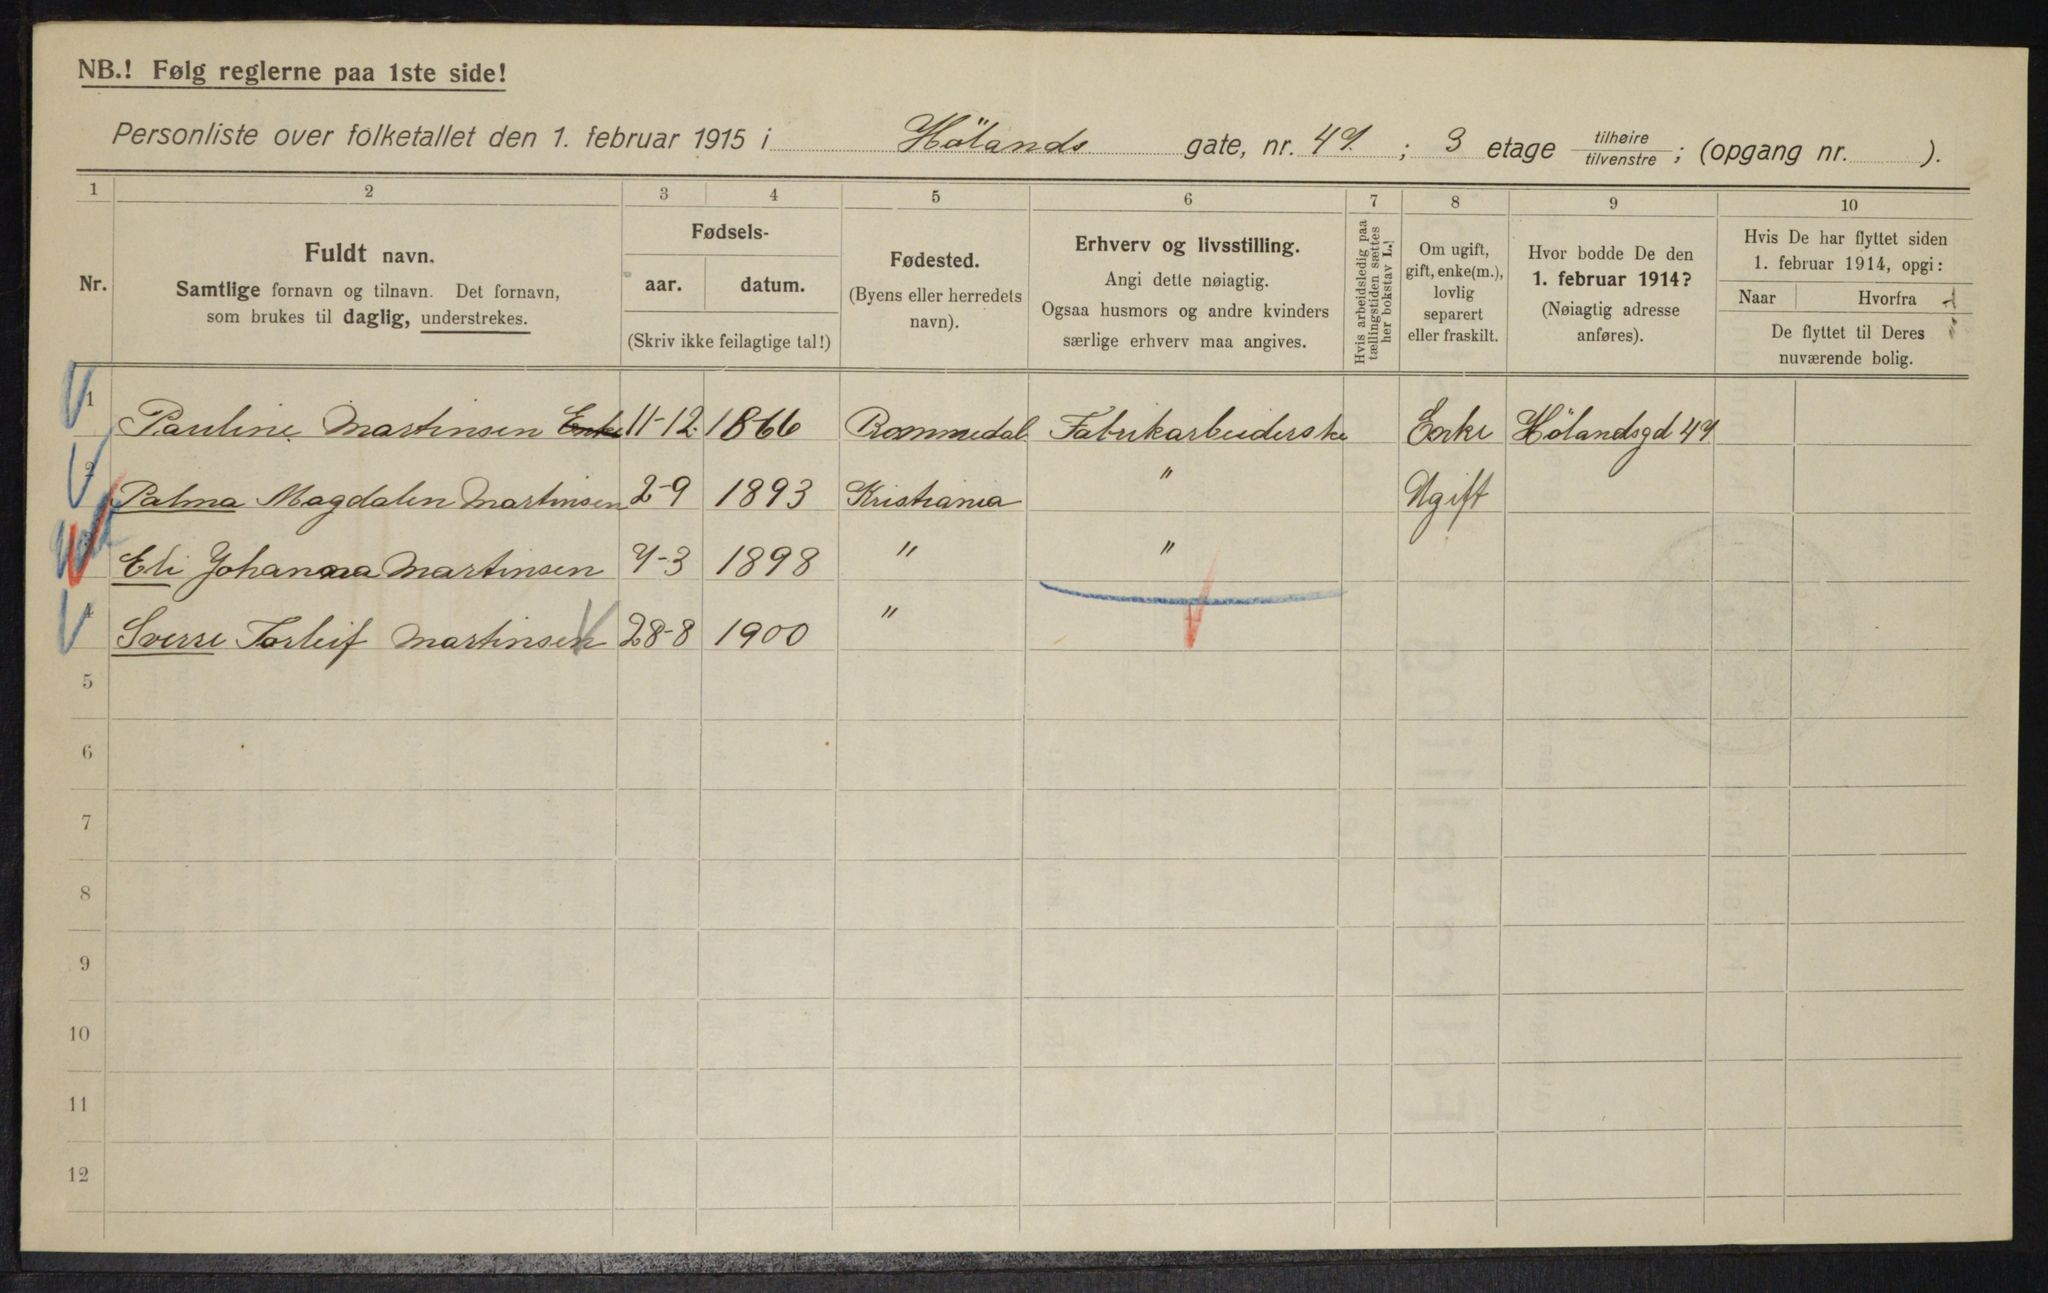 NB.! Følg reglerne paa 1ste side!
Personliste over folketallet den 1. februar 1915 i Hölands gate, nr. 49. ; 3 etage tilhøire / tilvenstre ; (opgang nr. ).
1 2 3 4 5 6 7 8 9 10
Nr.
Fuldt navn.
Samtlige fornavn og tilnavn. Det fornavn,
som brukes til daglig, understrekes.
Fødsels-
aar. datum.
(Skriv ikke feilagtige tal!)
Fødested.
(Byens eller herredets
navn).
Erhverv og livsstilling.
Angi dette nøiagtig.
Ogsaa husmors og andre kvinders
særlige erhverv maa angives.
Hvis arbeidsledig paa
tællingstiden sættes
her bokstav L.!
Om ugift,
gift, enke(m.),
lovlig
separert
eller fraskilt.
Hvor bodde De den
1. februar 1914?
(Nøiagtig adresse
anføres).
Hvis De har flyttet siden
1. februar 1914, opgi:
Naar Hvorfra
De flyttet til Deres
nuværende bolig.
1 Pauline Martinsen Enke 11-12 1866 Rommedal Fabrikarbeiderske Enke Hölandsgd 49
2 Palma Magdalen Martinsen 2-9 1893 Kristiania " Ugift
Eli Johanna Martinsen 9-3 1898 " "
4 Sverre Torleif Martinsen 28-8 1900 "
5
6
7
8
9
10
11
12